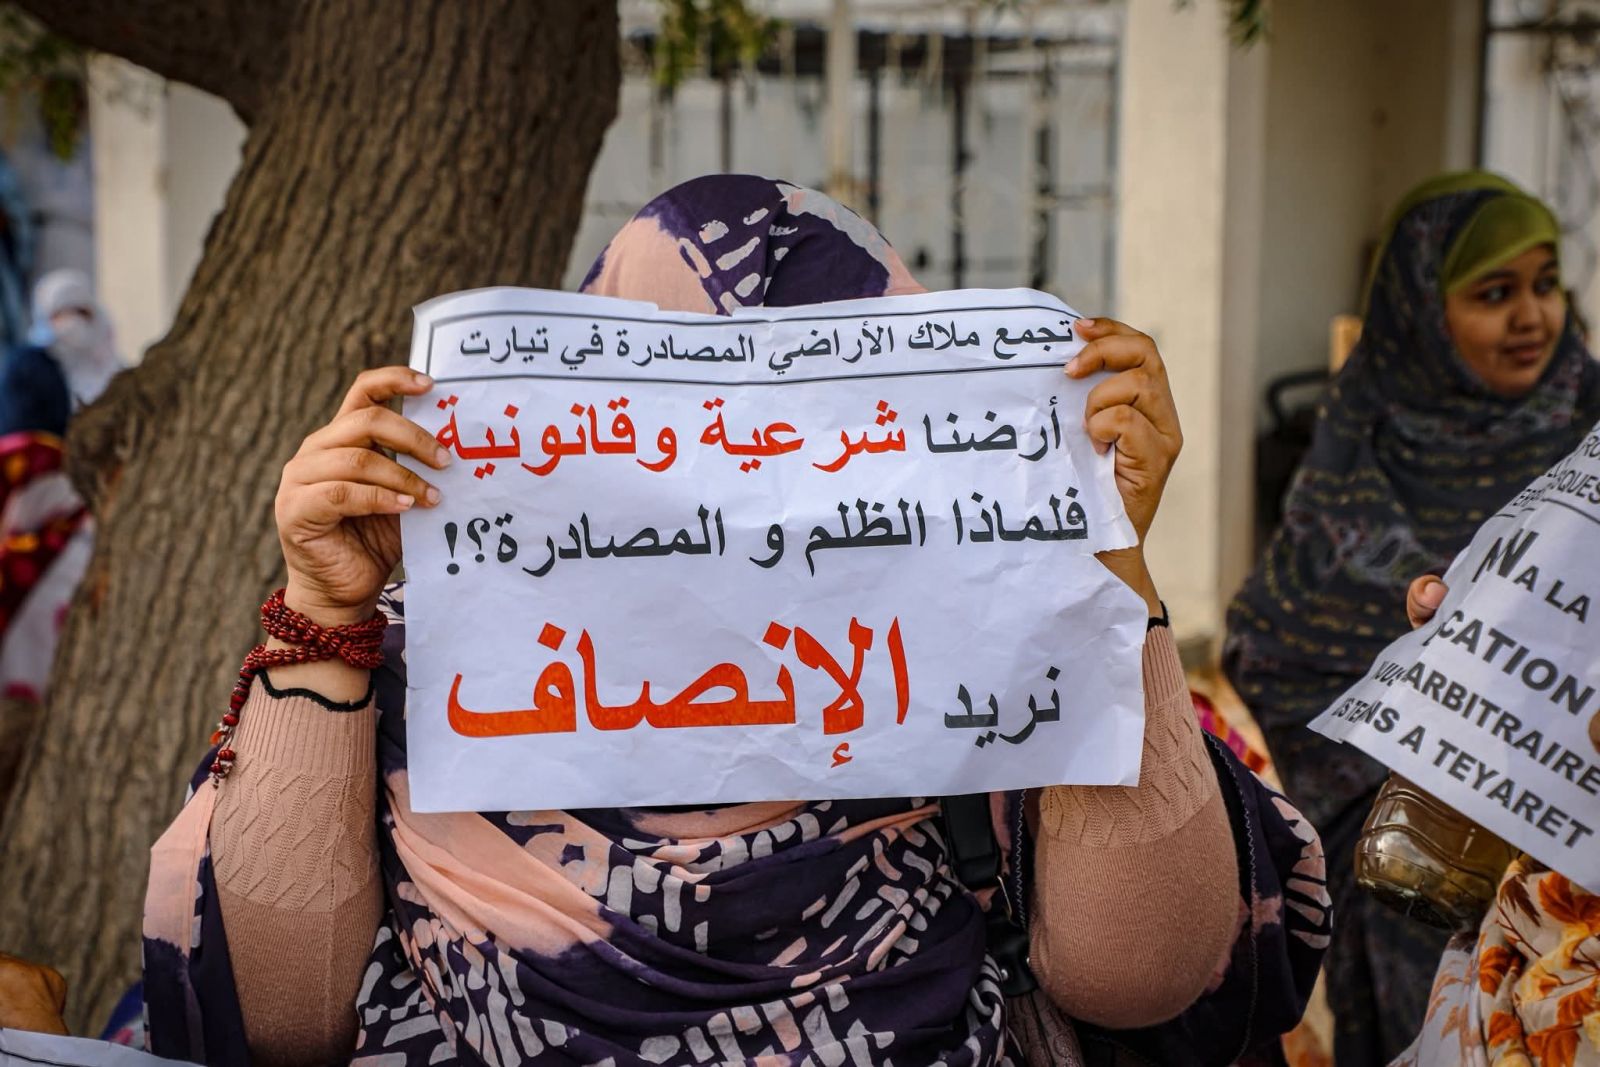 تجمع ملاك الأراضي المصادرة في تيارت
أرضنا شرعية وقانونية
فلماذا الظلم و المصادرة؟!
نريد الإنصاف
A LA
CATION
ARBITRAIRE
A TEYARET